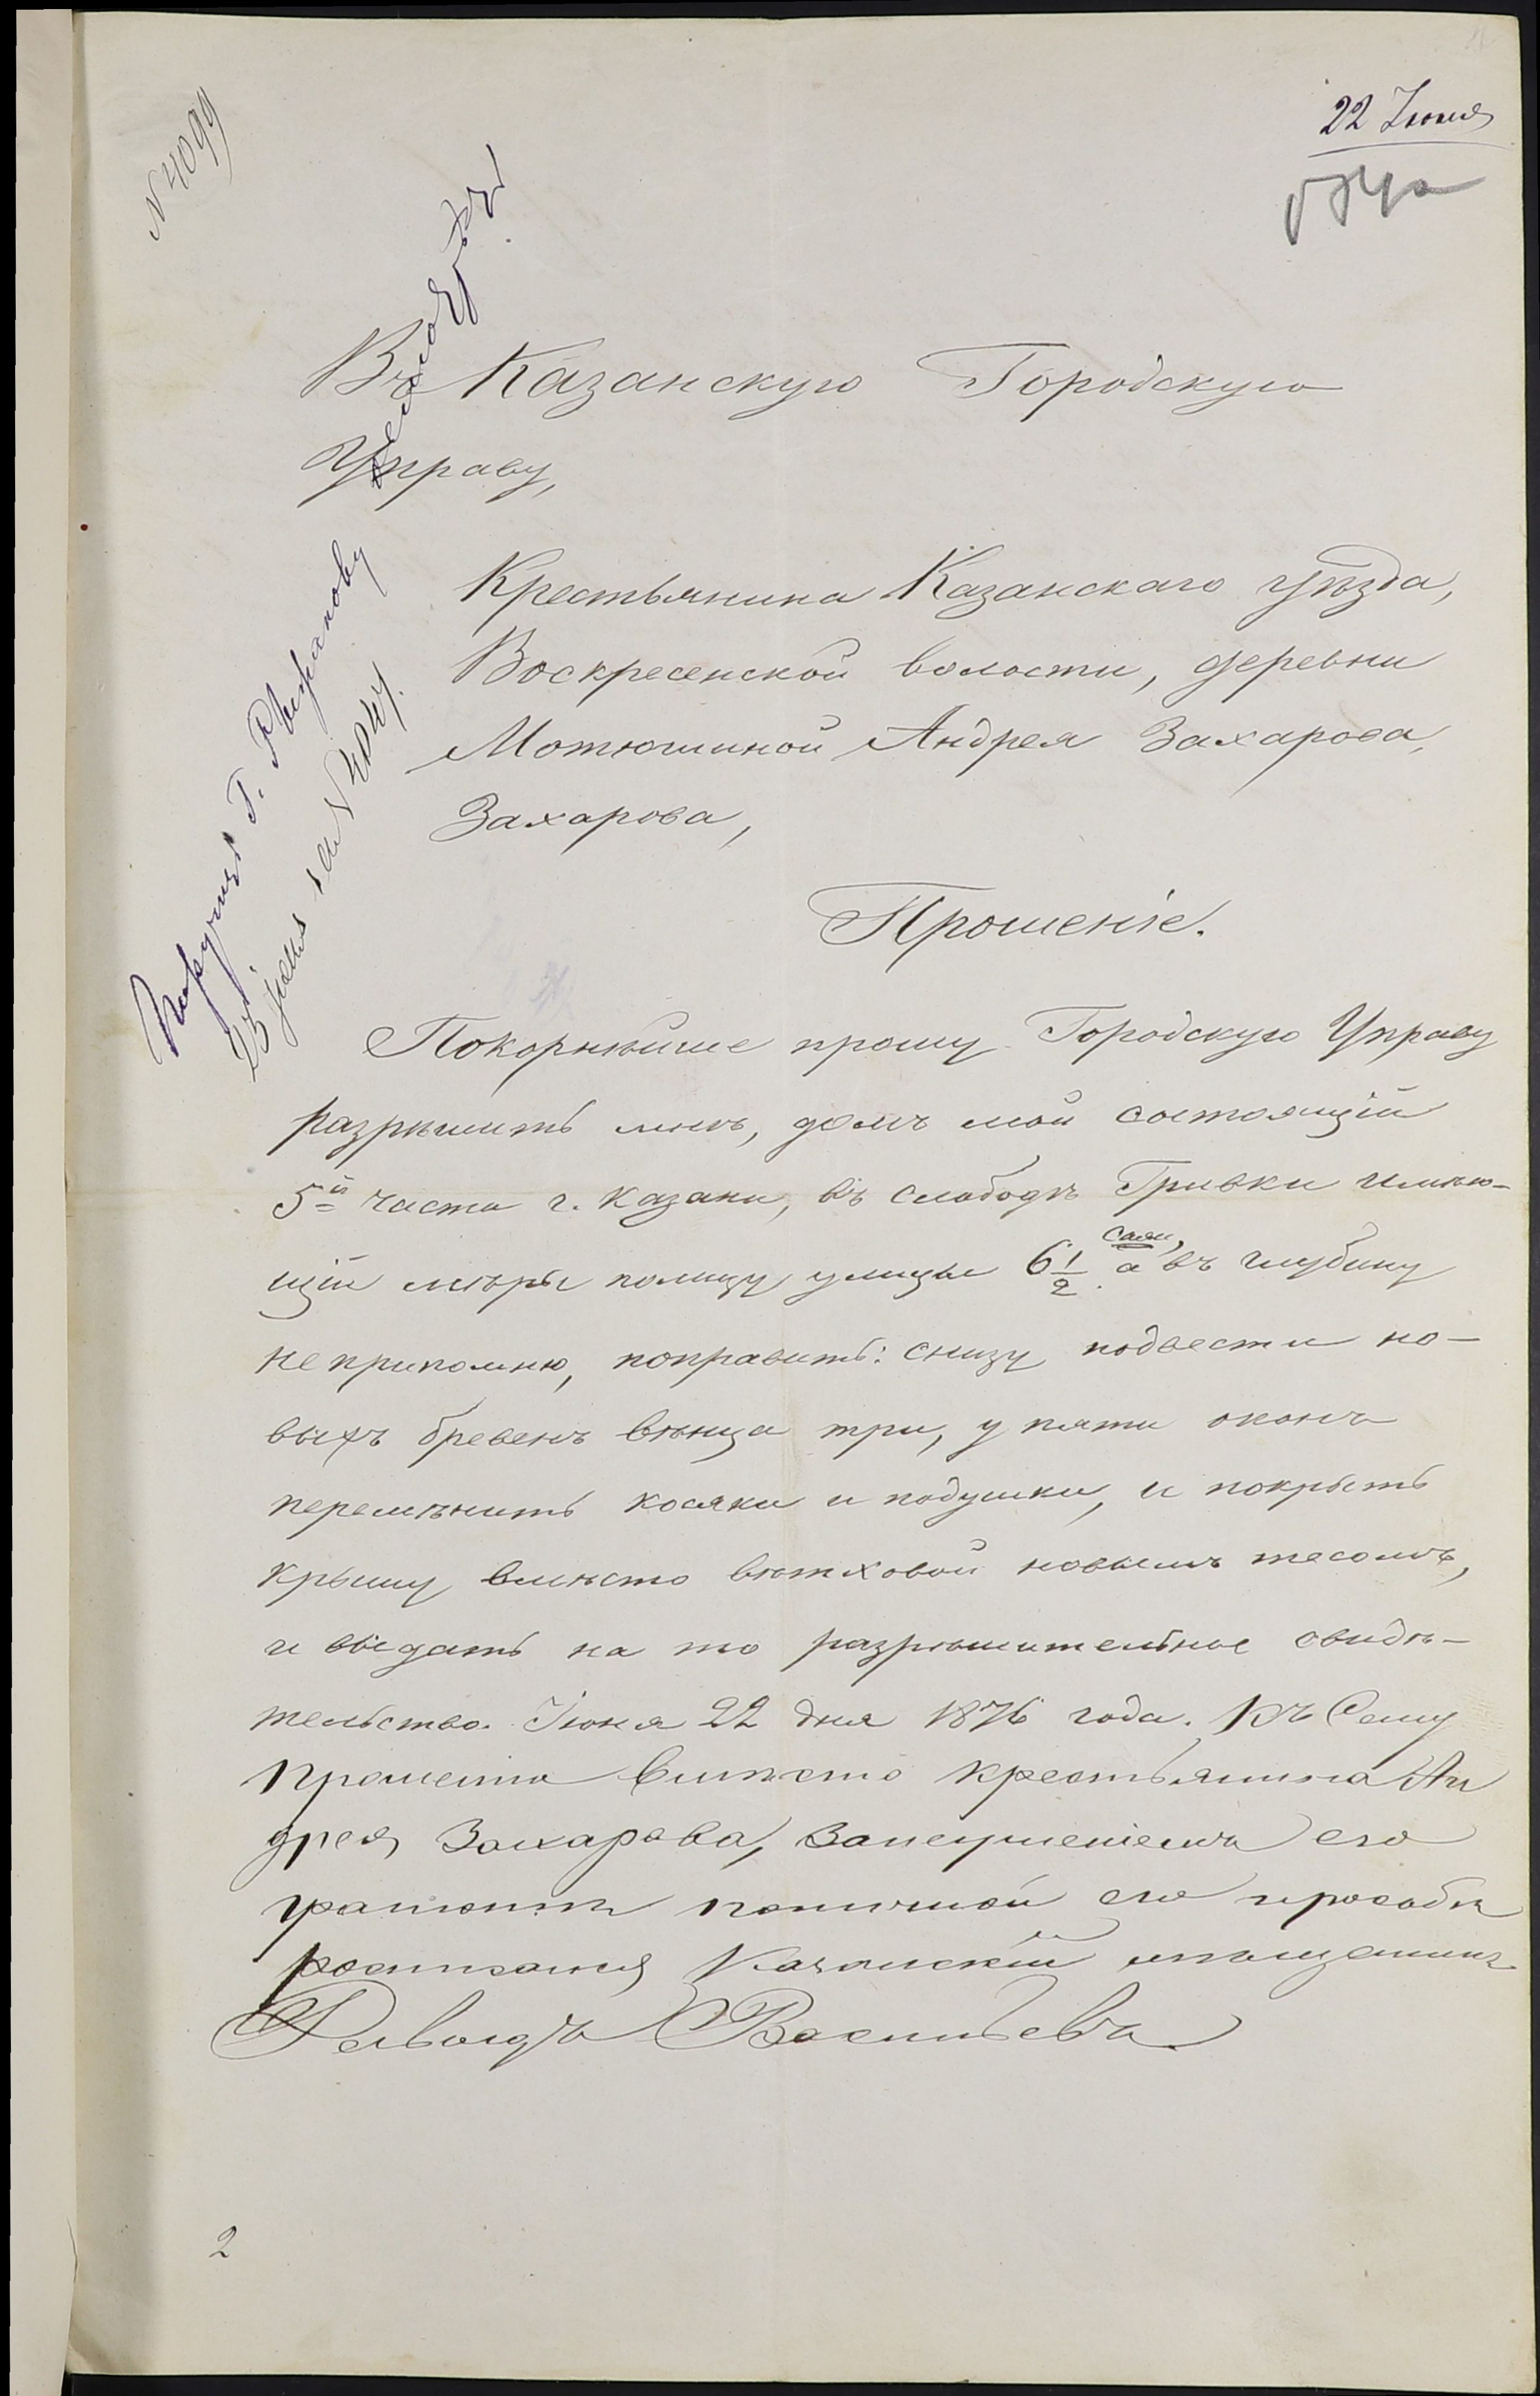 N 4099
22 Іюня
Въ Казанскую Городскую
Управу,
Крестьянина Казанскаго уѣзда,
Воскресенской волости, деревни
Мотюшиной Андрея Захарова,
Захарова,
Прошеніе.
Покорнѣйше прошу Городскую Управу
разрѣшить мнѣ, домъ мой состоящій
5й части г. Казани, въ слободѣ Гривки имѣю-
щій мѣры полицу улицы 6 1/2 саж, а въ глубину
неприпомню, поправить: снизу подвести но-
выхъ бревенъ вѣнца три, у пяти оконъ
перемѣнить косяки и подушки, и покрыть
крышу вмѣсто вѣтховой новымъ тесомъ,
и выдать на то разрѣшительное свидѣ-
тельство. Іюня 22 дня 1876 года. Къ Сему
прошенію вмѣсто крестьянина Ан
дрея Захарова, Занеумѣніемъ его
грамотѣ поличной его прозбѣ
росписался Казанскій мѣщанинъ
Васильевъ
Поручить Г.
23 Іюня
2